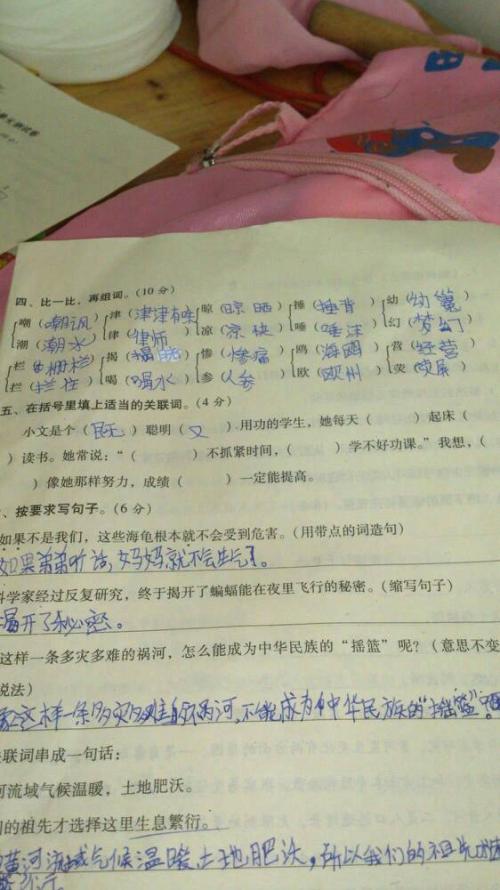 四、比一比，再组词。（10 分）
嘲（嘲讽） 津（津津有味） 晾（晾晒） 捶（捶背） 幼（幼
潮（潮水） 律（律师） 凉（凉快） 唾（唾沫） 幻（梦幻）
栏（栅栏） 揭（ 惨（惨痛） 鸥（海鸥） 营（经营）
拦（拦住） 喝（喝水） 参（人参） 欧（欧州） 荧（荧屏）
五、在括号里填上适当的关联词。（4 分）
小文是个（既）聪明（又）用功的学生，她每天（ ）起床（
）读书。她常说：“（ ）不抓紧时间，（ ）学不好功课。”我想，（
）像她那样努力，成绩（ ）一定能提高。
、按要求写句子。（6 分）
如果不是我们，这些海龟根本就不会受到危害。（用带点的词造句）
如果弟弟听话，妈妈就不会生气了。
科学家经过反复研究，终于揭开了蝙蝠能在夜里飞行的秘密。（缩写句子）
揭开了秘密。
这样一条多灾多难的祸河，怎么能成为中华民族的“摇篮”呢？（意思不变
说法）
这样一条多灾多难的祸河，不能成为中华民族的“摇篮”
关联词串成一句话：
河流域气候温暖，土地肥沃。
们的祖先才选择这里生息繁衍。
黄河流域气候温暖土地肥沃，所以我们的祖先